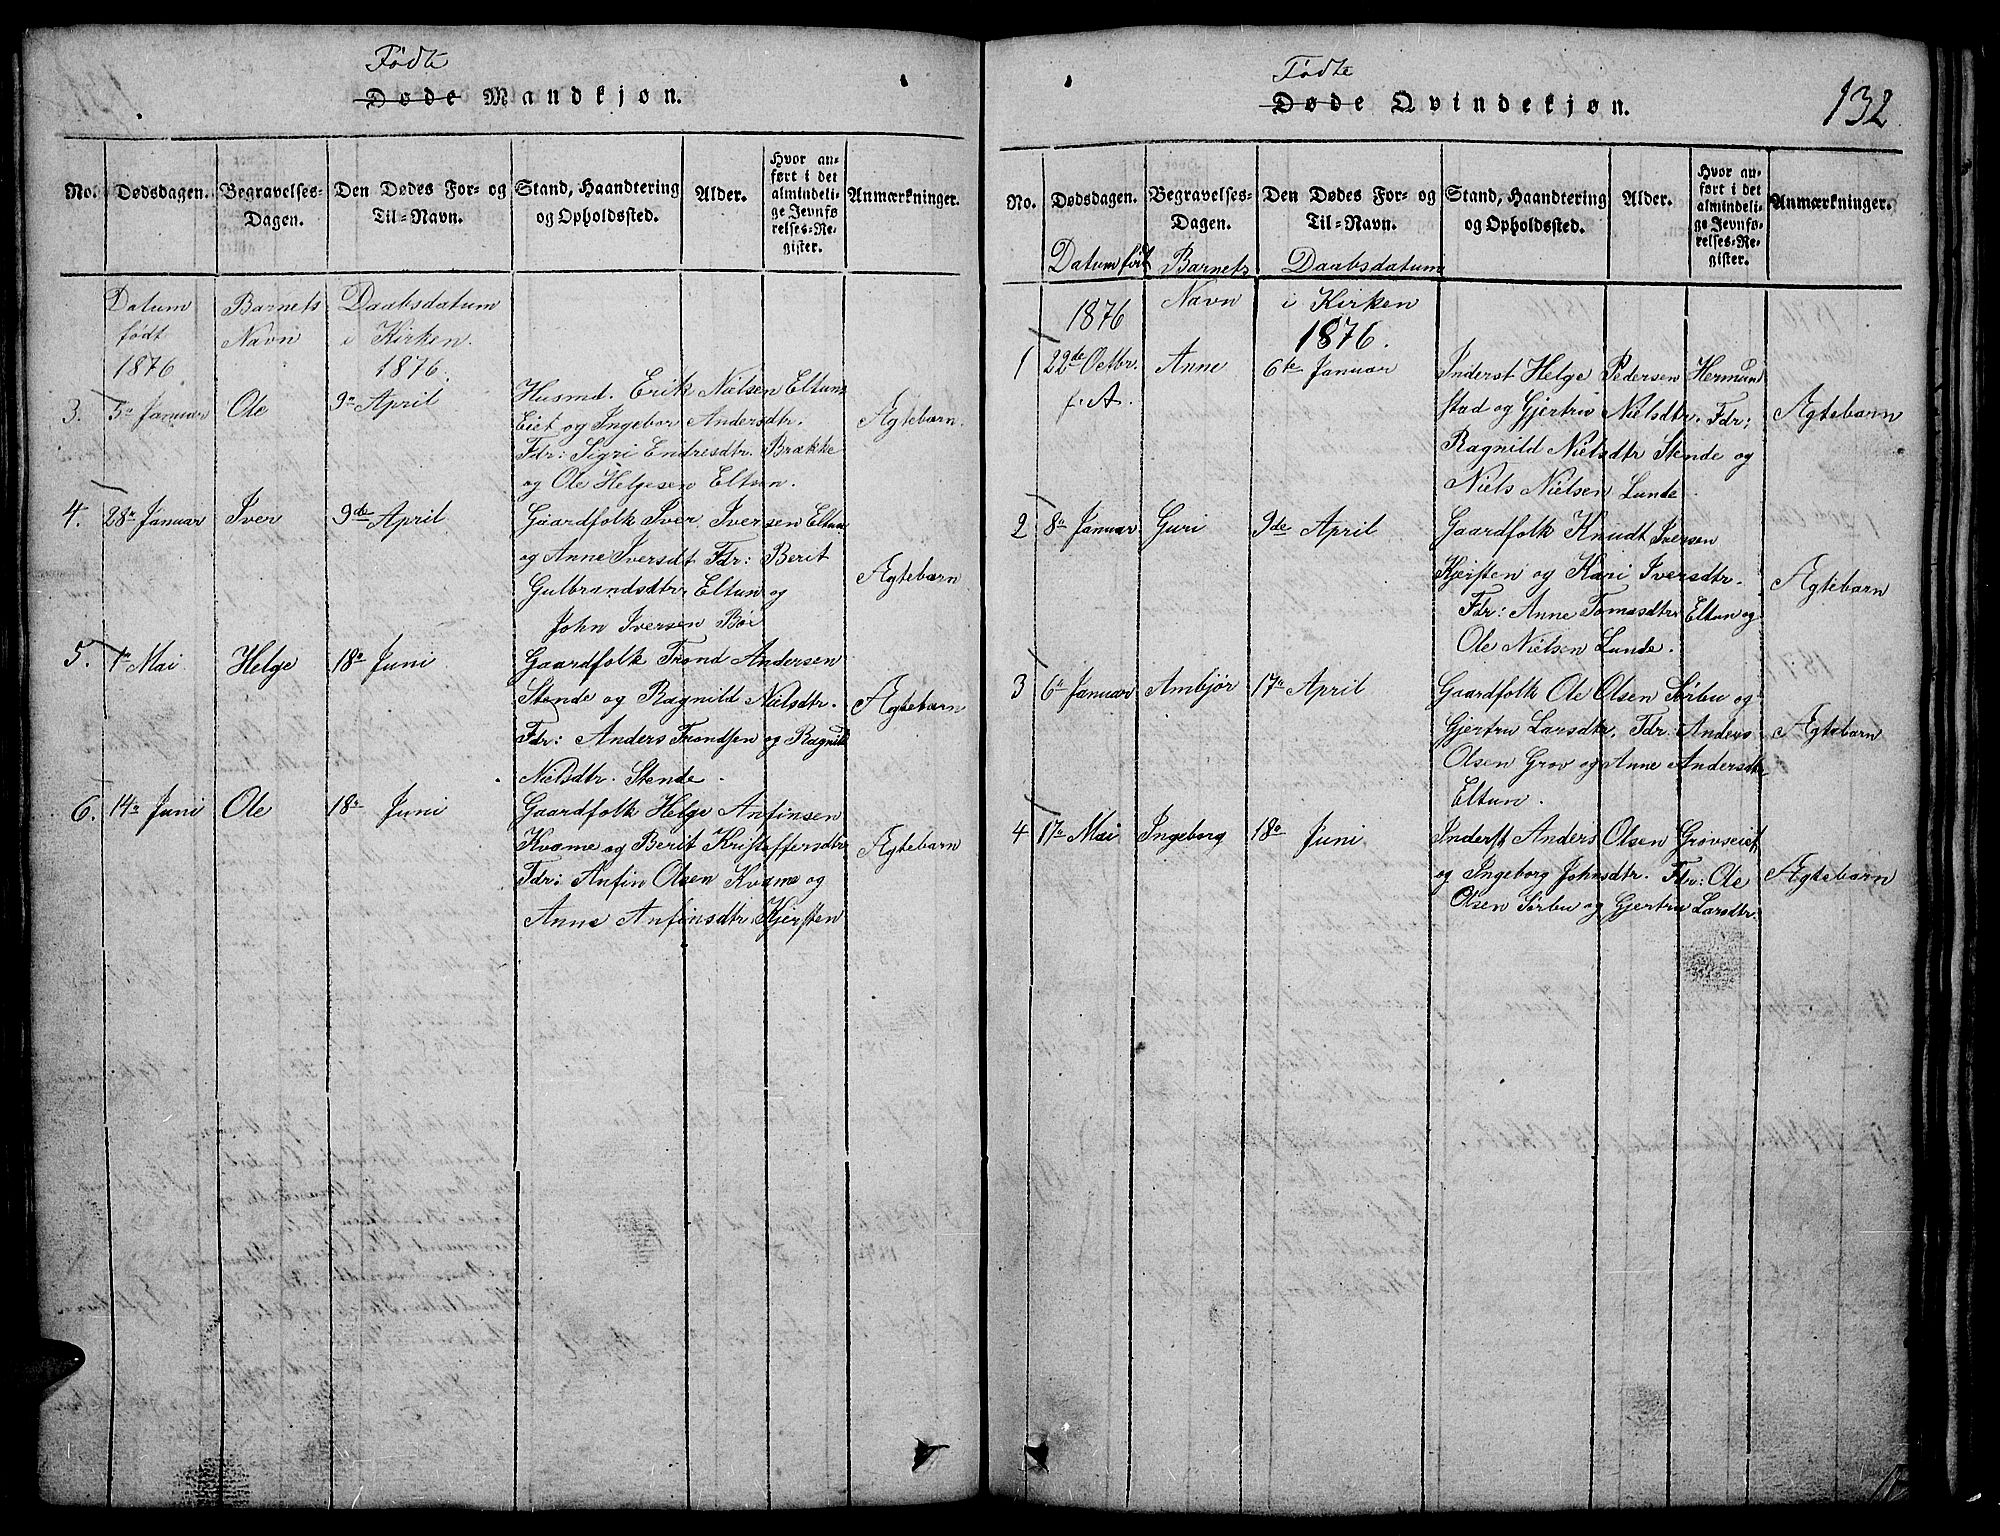 Fødte
Døde Mandkjøn.
No. Dødsdagen. Begravelses-Dagen. Den Dødes For- og Til-Navn. Stand, Haandtering og Opholdssted. Alder. Hvor anført i det almindelige Jevnførelses-Register. Anmærkninger.
Datum Barnets Daabsdatum
født Navn i Kirken.
1876 1876.
3. 5te Januar Ole 9de April Husmd. Erik Nielsen Eltuns
Eiet og Ingebor Andersdtr. Ægtebarn.
Fdr: Sigri Endresdtr. Brække
og Ole Helgesen Eltun.
4. 28de Januar Iver 9de April Gaardfolk Iver Iversen Eltun
og Anne Iversdt Fdr: Berit Ægtebarn
Gulbrandsdtr Eltun og
John Iversen Bør
5. 1te Mai Helge 18de Juni Gaardfolk Trond Andersen
Stende og Ragnild Nielsdtr. Ægtebarn
Fdr: Anders Trondsen og Ragnild
Nielsdtr. Stende.
6. 14de Juni Ole 18de Juni Gaardfolk Helge Anfinsen
Kvame og Berit Kristoffersdtr Ægtebarn
Fdr: Anfin Olsen Kvame og
Anne Anfinsdtr. Kjersten
Fødte
Døde Qvindekjøn. 132
No. Dødsdagen. Begravelses-Dagen. Den Dødes For- og Til-Navn. Stand, Haandtering og Opholdssted. Alder. Hvor anført i det almindelige Jevnførelses-Register. Anmærkninger.
Datum født Barnets Daabsdatum
1876 Navn i Kirken
1876.
1 22de Octbr. Anne 6te Januar Inderst Helge Pedersen Hermund
f. A. stad og Gjertru Nielsdtr. Fdr: Ægtebarn
Ragnild Nielsdtr Stende og
Niels Nielsen Lunde.
2 8de Januar Guri 9de April Gaardfolk Knudt Iversen
Kjersten og Kari Iversdtr. Ægtebarn
Fdr: Anne Tomasdtr Eltun og
Ole Nielsen Lunde.
3 6te Januar Ambjør 17de April Gaardfolk Ole Olsen Sørbu og
Gjertru Larsdtr. Fdr. Anders Ægtebarn
Olsen Grov og Anne Andersdtr
Eltun.
4 17de Mai Ingeborg 18de Juni Inderst Anders Olsen Grovseiet
og Ingeborg Johnsdtr. Fdr: Ole Ægtebarn
Olsen Sørbu og Gjertru Larsdtr.